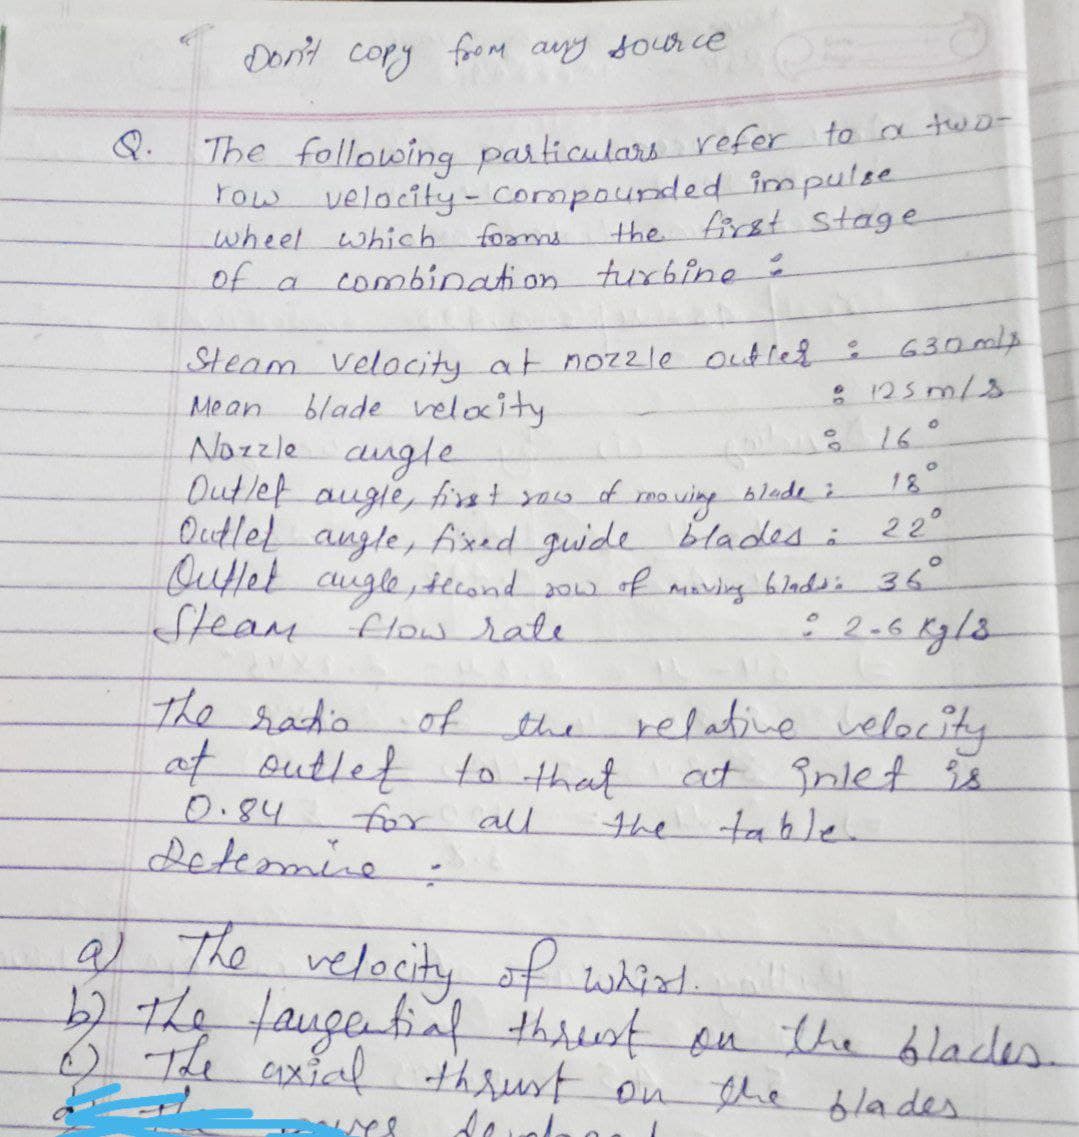 Don't copy from any source
Q. The following particulars refer to a two-
row velocity-compounded impulse
wheel which forms the first stage
of a combination turbine :
Steam velocity at nozzle outlet : 630 m/s
Mean blade velocity : 125 m/s
Nozzle angle : 16°
Outlet angle, first row of moving blade : 18°
Outlet angle, fixed guide blades : 22°
Outlet angle, second row of moving blads: 36°
Steam flow rate : 2.6 kg/s
The ratio of the relative velocity
at outlet to that at inlet is
0.84 for all the table.
Determine :
a) The velocity of whirl.
b) The tangential thrust on the blades.
c) The axial thrust on the blades